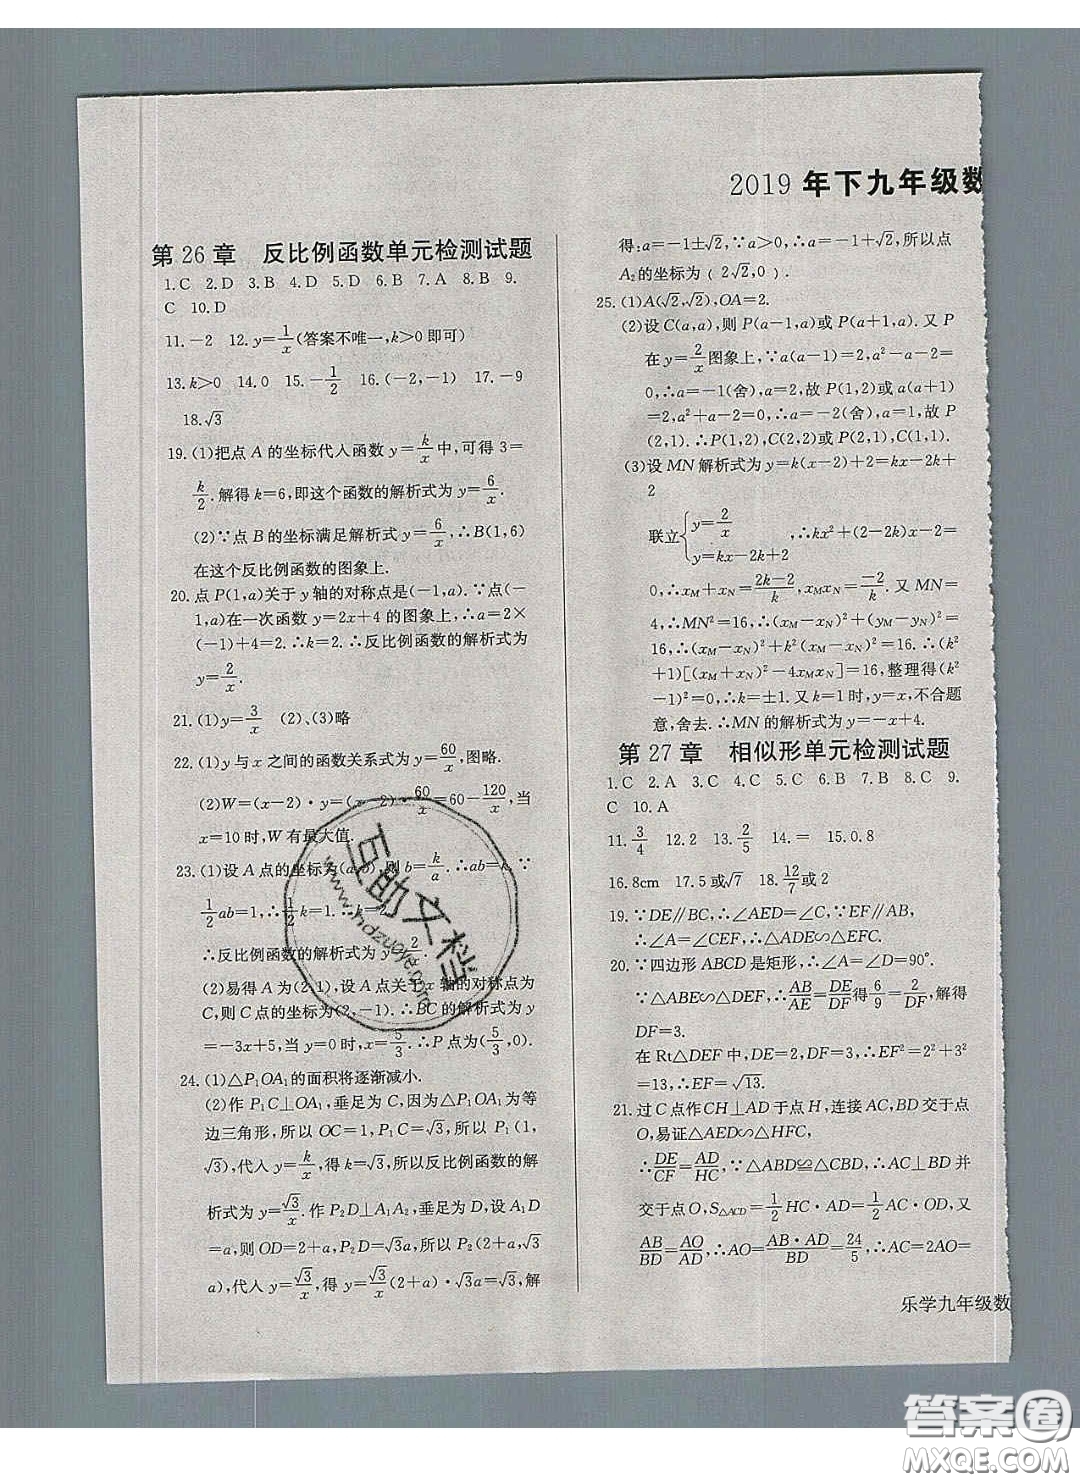 2019 年下九年级数
第 26 章　反比例函数单元检测试题
1.C　2.D　3.B　4.D　5.D　6.B　7.A　8.B　9.
C　10.D
11.-2　12.y=1/x(答案不唯一,k>0 即可)
13.k>0　14.0　15.-1/2　16.(-2,-1)　17.-9
18.√3
19.(1)把点 A 的坐标代人函数 y=k/x 中,可得 3=
k/2.解得 k=6,即这个函数的解析式为 y=6/x.
(2)∵点 B 的坐标满足解析式 y=6/x,∴B(1,6)
在这个反比例函数的图象上.
20.点 P(1,a)关于 y 轴的对称点是(-1,a).∵点(
-1,a)在一次函数 y=2x+4 的图象上,∴a=2×
(-1)+4=2.∴k=2.∴反比例函数的解析式为
y=2/x.
21.(1)y=3/x　(2)、(3)略
22.(1)y 与 x 之间的函数关系式为 y=60/x,图略.
(2)W=(x-2)·y=(x-2)·60/x=60-120/x,当
x=10 时,W 有最大值.
23.(1)设 A 点的坐标为(a,b),则 b=k/a.∴ab=k.∵
1/2ab=1,∴1/2k=1.∴k=2.
∴反比例函数的解析式为 y=2/x.
(2)易得 A 为(2,1),设 A 点关于 x 轴的对称点为
C,则 C 点的坐标为(2,-1).∴BC 的解析式为 y
=-3x+5,当 y=0 时,x=5/3.∴P 点为(5/3,0).
24.(1)△P₁OA₁的面积将逐渐减小.
(2)作 P₁C⊥OA₁,垂足为 C,因为△P₁OA₁为等
边三角形,所以 OC=1,P₁C=√3,所以 P₁(1,
√3),代人 y=k/x,得 k=√3,所以反比例函数的解
析式为 y=√3/x.作 P₂D⊥A₁A₂,垂足为 D,设 A₁D
=a,则 OD=2+a,P₂D=√3a,所以 P₂(2+a,√3
a),代人 y=√3/x,得 y=√3/x(2+a)·√3a=√3,解
得:a=-1±√2,∵a>0,∴a=-1+√2,所以点
A₂的坐标为﹙2√2,0﹚.
25.(1)A(√2,√2),OA=2.
(2)设 C(a,a),则 P(a-1,a)或 P(a+1,a).又 P
在 y=2/x图象上,∵a(a-1)=2,a²-a-2=
0,∴a=-1(舍),a=2,故 P(1,2)或 a(a+1)
=2,a²+a-2=0,∴a=-2(舍),a=1,故 P
(2,1).∴P(1,2),C(2,2)或 P(2,1),C(1,1).
(3)设 MN 解析式为 y=k(x-2)+2=kx-2k+
2
联立{y=2/x
y=kx-2k+2　,∴kx²+(2-2k)x-2=
0,∴xM+xN=2k-2/k,xMxN=-2/k.又 MN=
4,∴MN²=16,∴(xM-xN)²+(yM-yN)²=
16,∴(xM-xN)²+k²(xM-xN)²=16.∴(k²
+1)[(xM+xN)²-4xMxN]=16,整理得(k²
-1)²=0,∴k=±1.又 k=1 时,y=x,不合题
意,舍去.∴MN 的解析式为 y=-x+4.
第 27 章　相似形单元检测试题
1.C　2.A　3.C　4.C　5.C　6.B　7.B　8.C　9.
C　10.A
11.3/4　12.2　13.2/5　14.=　15.0.8
16.8cm　17.5 或√7　18.12/7或 2
19.∵DE∥BC,∴∠AED=∠C,∵EF∥AB,
∴∠A=∠CEF,∴△ADE∽△EFC.
20.∵四边形 ABCD 是矩形,∴∠A=∠D=90°.
∵△ABE∽△DEF,∴AB/AE=DE/DF得6/9=2/DF,解得
DF=3.
在 Rt△DEF 中,DE=2,DF=3,∴EF²=2²+3²
=13,∴EF=√13.
21.过 C 点作 CH⊥AD 于点 H,连接 AC,BD 交于点
O,易证△AED∽△HFC,
∴DE/CF=AD/HC.　∵△ABD≌△CBD,∴AC⊥BD 并
交于点 O,S△ACD=1/2HC·AD=1/2AC·OD,又
AB/BD=AO/AD,∴AO=AB·AD/BD=24/5,∴AC=2AO=
乐学九年级数
互助文档
www.hdzuoye.com
答案圈
MXQE.COM